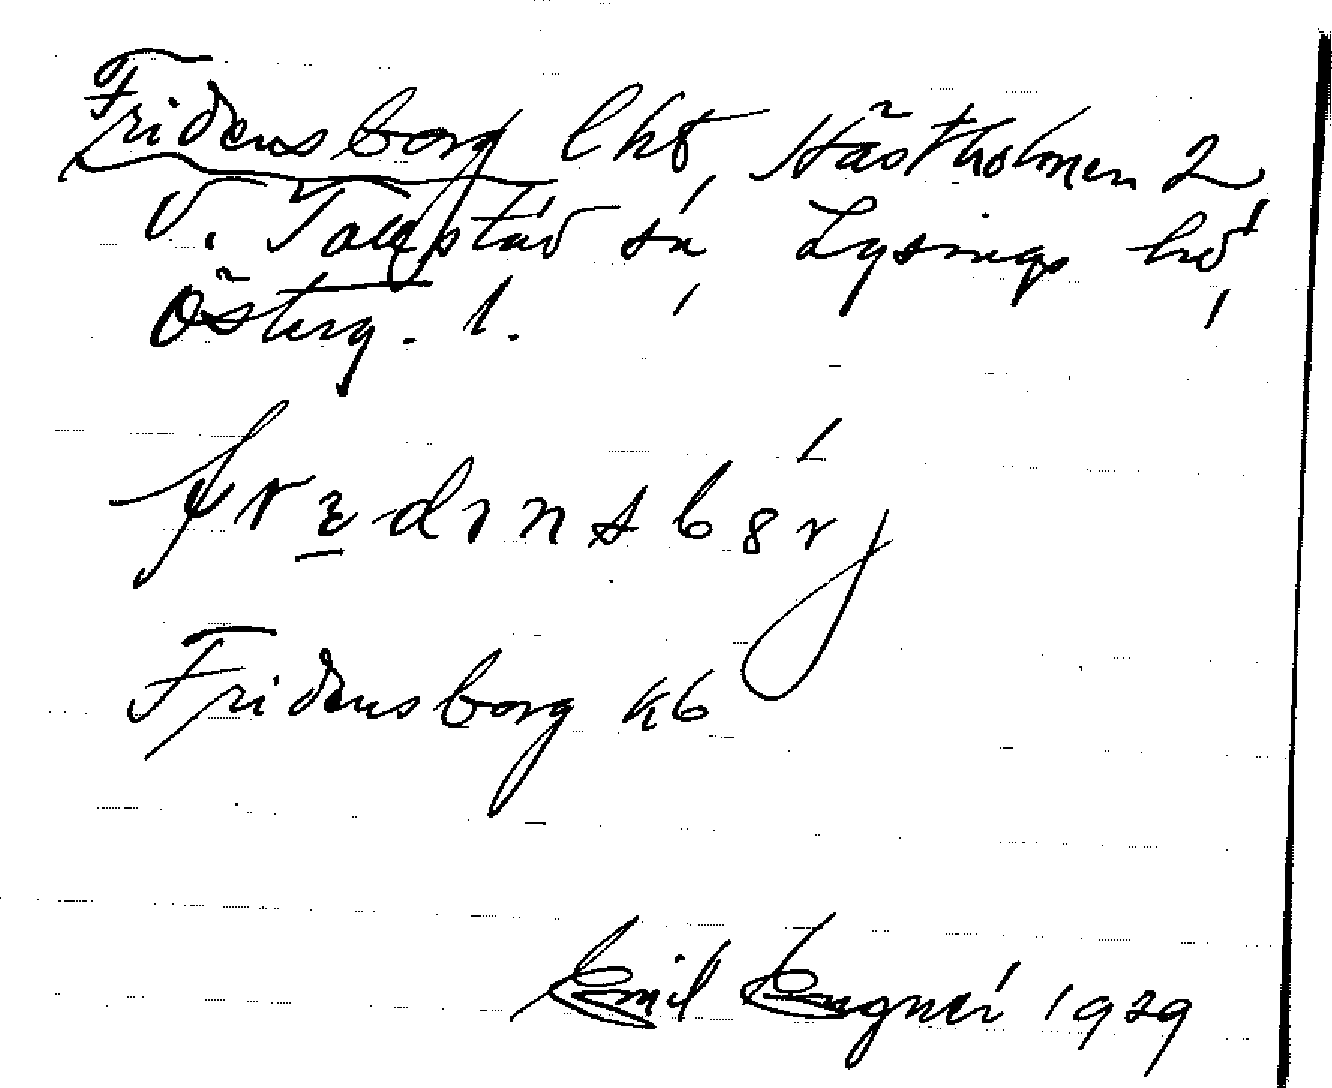 Fridensborg lht, Hästholmen 2
V. Tollstad sn, Lysings hd,
Österg. l.
Fridensborg kb
Emil Engner 1929